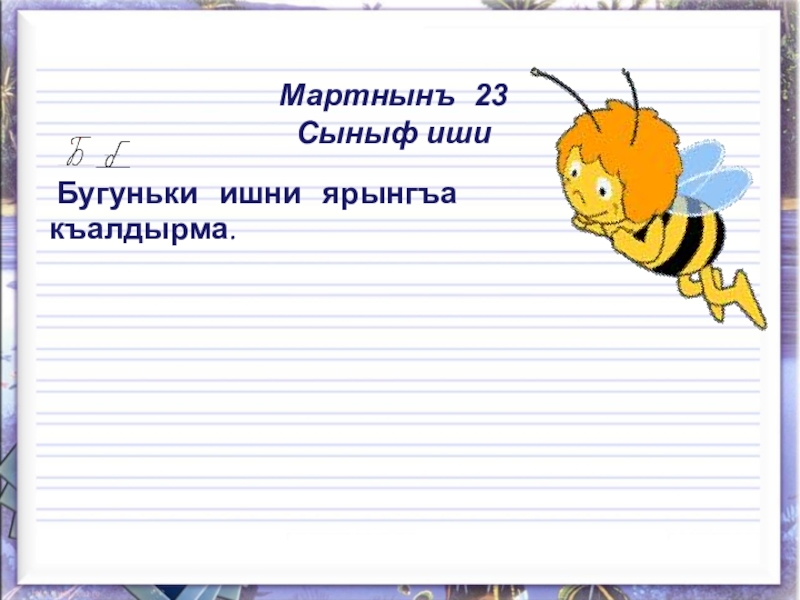 Мартнынъ 23
Сыныф иши
Б б
Бугуньки ишни ярынгъа
къалдырма.